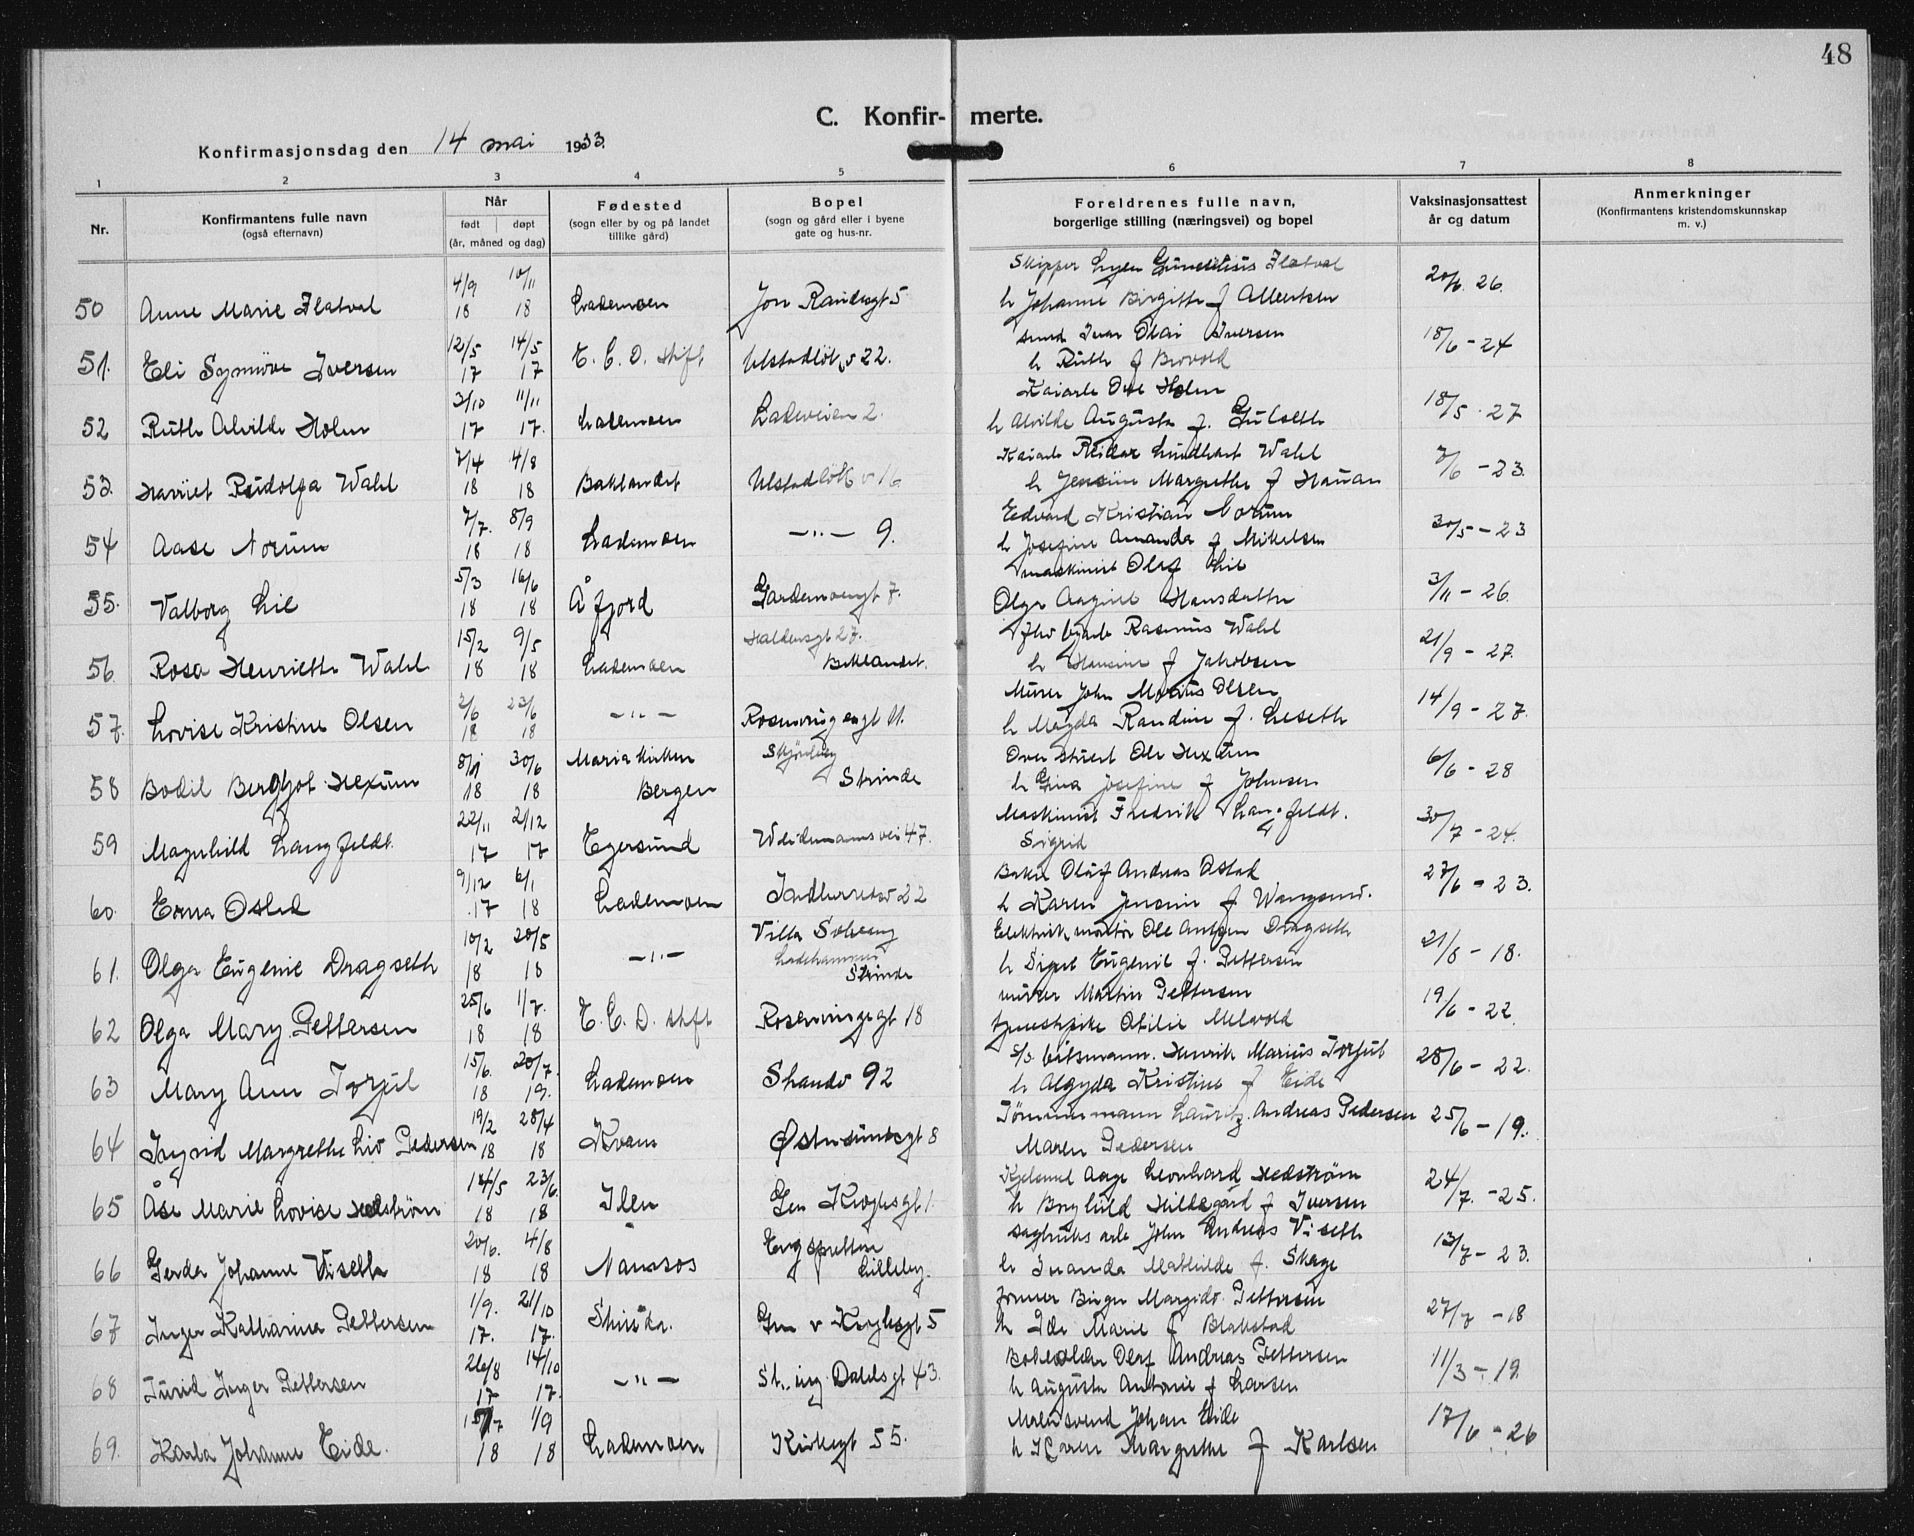 48
C. Konfir- merte.
Konfirmasjonsdag den 14 mai 1933.
1 2 3 4 5 6 7 8
Nr.
Konfirmantens fulle navn
(også efternavn)
Når
født døpt
(år, måned og dag)
Fødested
(sogn eller by og på landet
tillike gård)
Bopel
(sogn og gård eller i byene
gate og hus-nr.
Foreldrenes fulle navn,
borgerlige stilling (næringsvei) og bopel
Vaksinasjonsattest
år og datum
Anmerkninger
(Konfirmantens kristendomskunnskap
m. v.)
4/9 10/11 Skipper Flatval
50 Anne Marie Flatval 18 18 Lademoen Jon Raudesgt 5 h Johanne Birgitte f Albertsen 20/6 26.
12/5 14/5 smed Ivar Olai Iversen
51. Eli Synnøve Iversen 17 17 E. C. D. stift Ulstadløk v 22. h Ruth f Brovold 18/6 - 24
3/10 11/11 Kaiarb Ove Holm
52 Ruth Alvilde Holm 17 17. Lademoen Ladeveien 2. h Alvilde Augusta f. Gulseth 18/5 . 27
7/4 4/8 Kaiarb Reidar Lindhart Wahl
53. Harriet Ruidolfa Wahl 18 18 Baklandet Ulstadløk v 16 h Jensine Margrethe f Hauan 7/6 - 23.
7/7. 8/9 Edvard Kristian Norum
54 Aase Norum 18 18 Lademoen — " — 9. h Josefine Amanda f Mikkelsen 30/5 - 23
5/3 16/6 maskinist Olaf Lie
55. Valborg Lie 18 18 Åfjord Gardemoengt 7. Olga Hansdatter 3/11 - 26.
15/2 9/5 Haldensgt 27. Rasmus Wahl
56. Rosa Henriette Wahl 18 18 Lademoen Baklandet. h Hansine f Jakobsen 21/9 - 27.
2/6 23/6 Murer John Marius Olsen
57. Lovise Kristine Olsen 18 18 — " — Rosenvingesgt 11. h Magda Randine f. Leseth 14/9 - 27.
8/1 30/6 Mariakirken Overstuert Ole Hexum
58 Bodil Bergljot Hexum 18 18 Bergen Strinda h Gina Josefine f Johnsen 6/6 - 28
22/11 2/12 Maskinist Fredrik Langfeldt.
59 Magnhild Langfeldt. 17 17 Egersund Weidemannsvei 47. Sigrid 30/7 - 24.
9/12 6/1 Baker Olaf Andreas Østad
60. Erna Østad 17 18 Lademoen Indherredsv 22 h Karen Jensine f Wangsmo. 27/6 - 23.
10/2 20/5 Villa Solveig Elektrik montør Ole Anton Dragseth
61. Olga Eugenie Dragseth 18 18 — " — Ladehammer Strinda h Signe Eugenie f. Pettersen 21/8 - 18.
25/6 1/7. murer Martin Pettersen
62 Olga Mary Pettersen 18 18 E. C. D. stift Rosenvingesgt 18 tjenestepike Otilie Melvold 19/6 - 22.
15/6. 20/7. s/s båtsmann. Henrik Marius Torjul
63 Mary Ann Torjul 18 19. Lademoen Strandv 92 h Algyda Kristine f Eide 28/6 - 22.
19/2 28/4 Tømmermann Lauritz. Andreas Pedersen
64 Ingrid Margrethe Liv Pedersen 18 18 Kvam Østersundsgt 8 Maren Pedersen 25/6 - 19.
14/5 23/6. Kjelsmed Aage Leonhard Hedstrøm
65 Åse Marie Lovise Hedstrøm 18 18 Ilen Gen Kroghsgt 1 h Borghild Hildegard f Iversen 24/7. - 25.
20/6. 4/8 sagbruks arb John Andreas Viseth
66 Gerda Johanne Viseth 18 18 Namsos Lilleby. h Inanda Mathilde f. Skage 13/7 - 23.
1/9. 21/10 Birger Margido Pettersen
67 Inger Katharina Pettersen 17. 17. Strinda. Gen v Kroghsgt 5 h Ida Marie f Blakstad 27/7 - 18
26/8 14/10 Bokholder Olaf Andreas Pettersen
68 Turid Inger Pettersen 17 17. — " — St..ing. Dahls gt 43. h Augusta Antonie f Larsen 11/3 - 19.
15/7 1/9 Malersvend Johan Eide
69. Karla Johanne Eide. 18 18 Lademoen Kirkegt 55. h Karen Margrethe f Karlsen 17/6 - 26